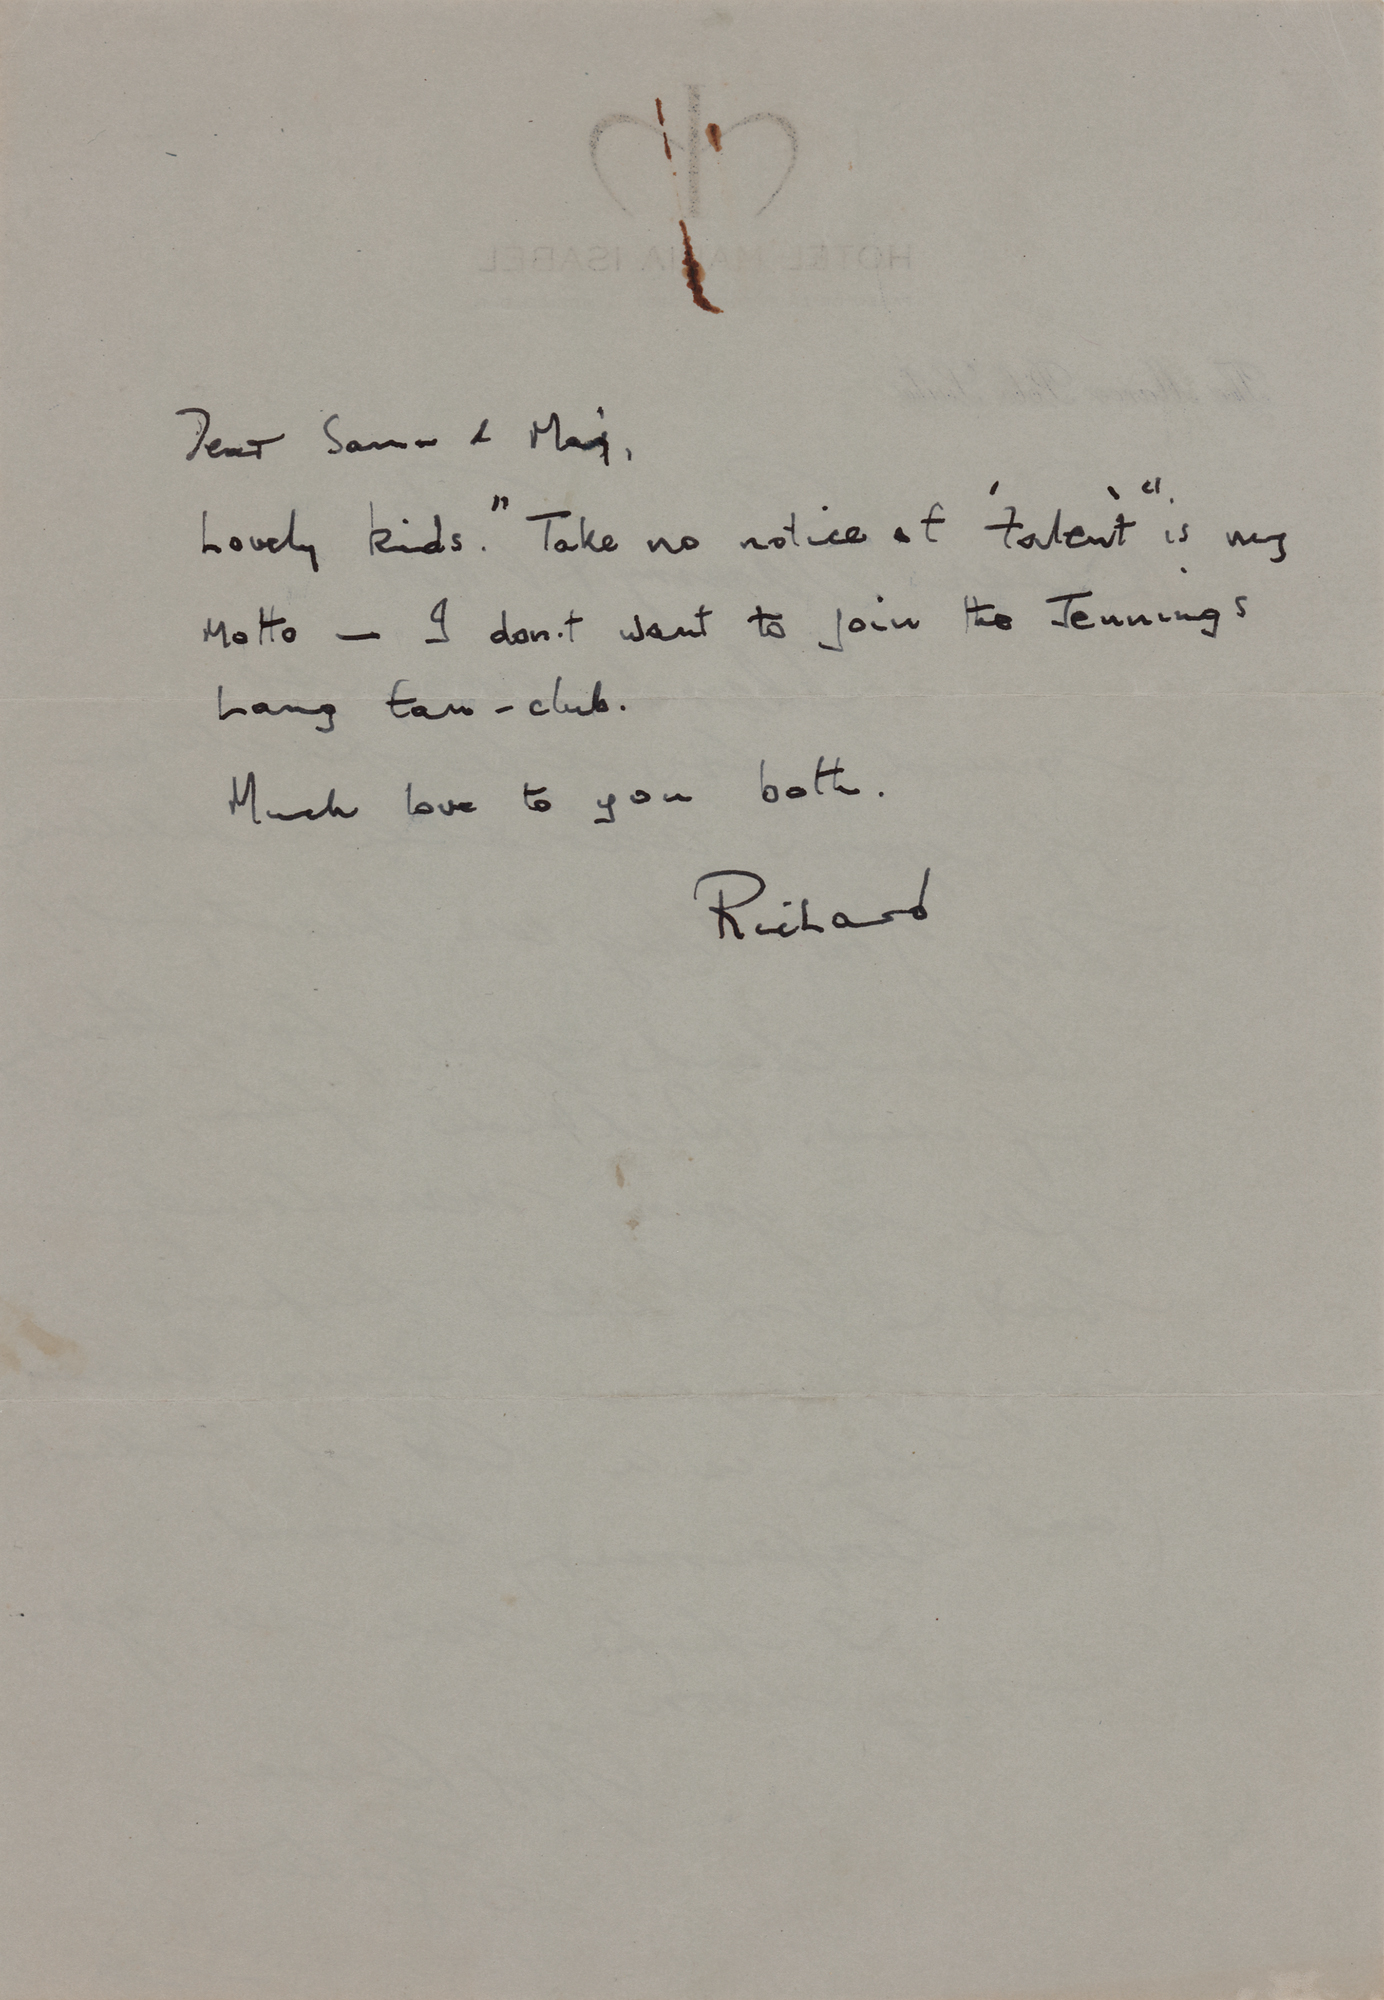 HOTEL MARIA ISABEL
Dear Sam & Maj,
Lovely kids. "Take no notice of 'talent'" is my
Motto — I don't want to join the Jennings
Lang fan-club.
Much love to you both.
Richard